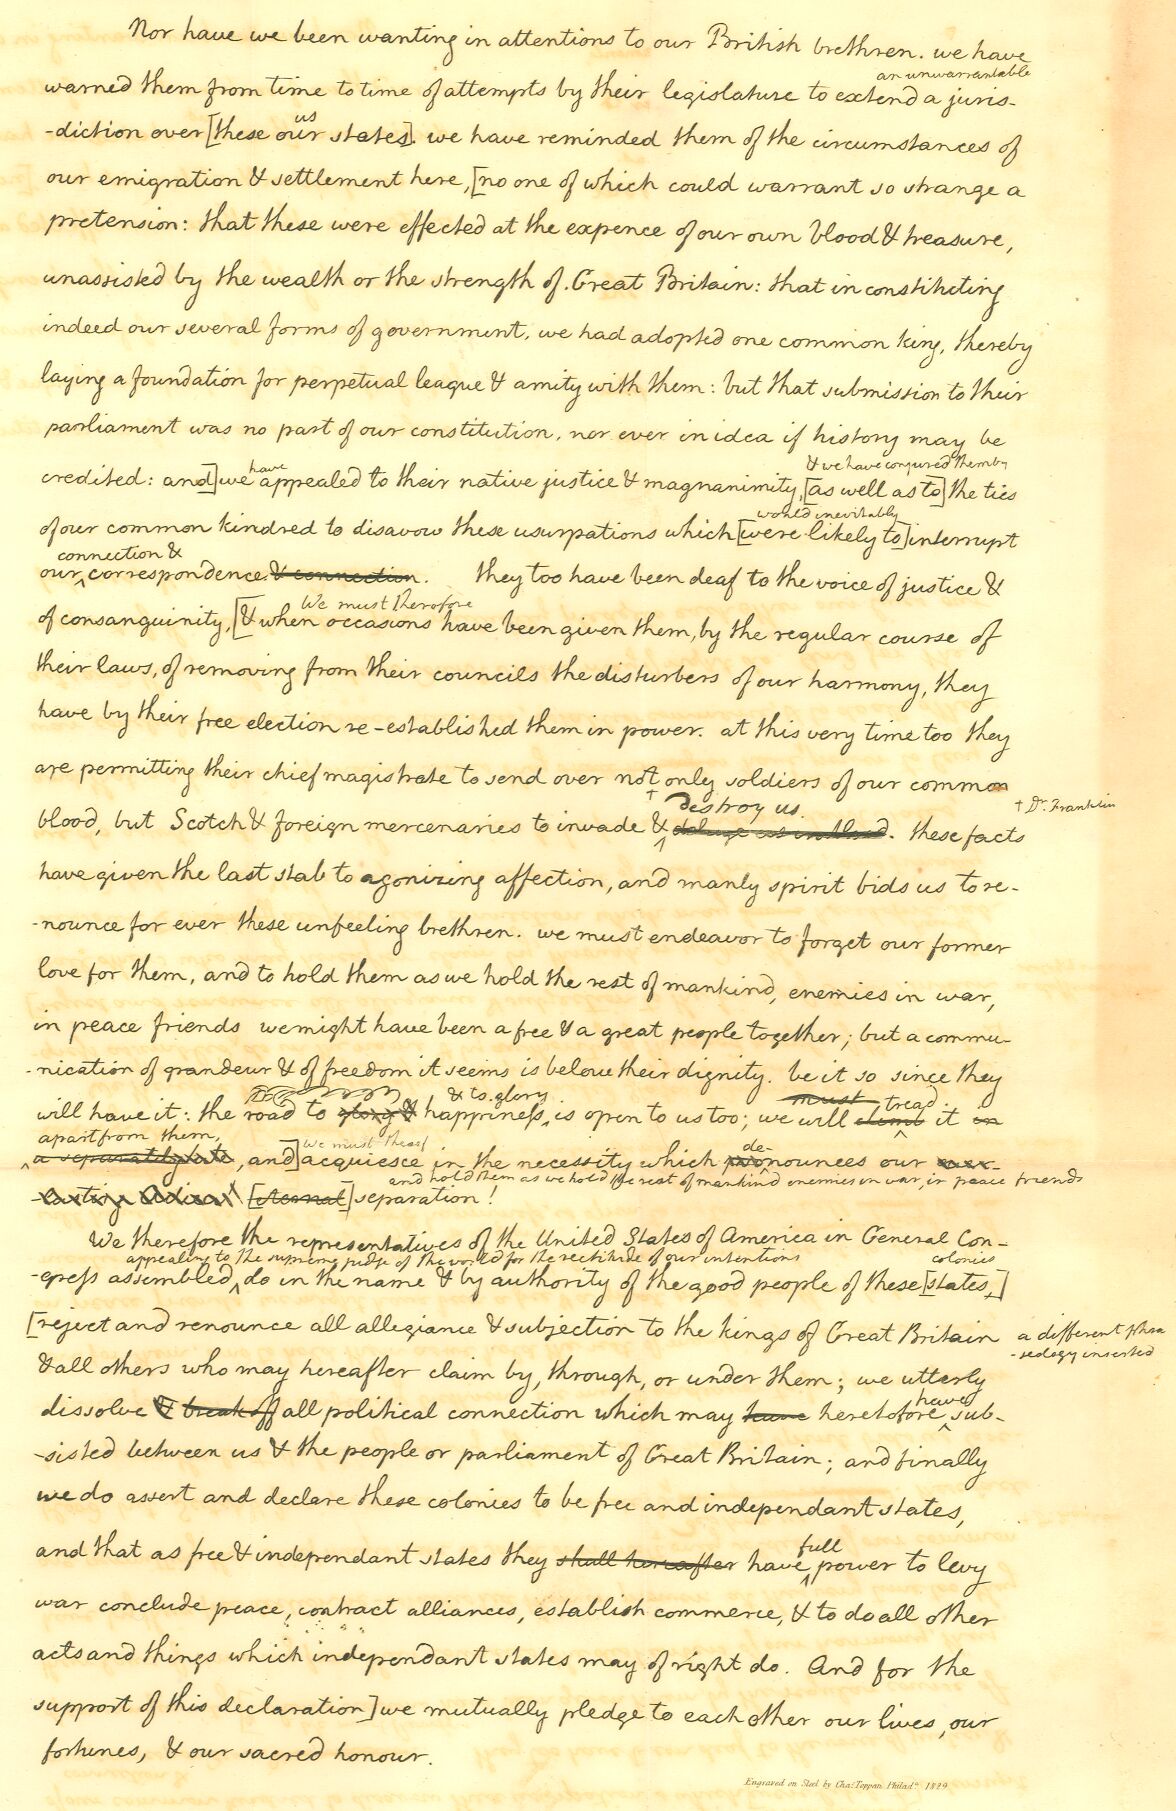 Nor have we been wanting in attentions to our British brethren. we have
an unwarrantable
warned them from time to time of attempts by their legislature to extend a juris-
us
-diction over [these our states]. we have reminded them of the circumstances of
our emigration & settlement here, [no one of which could warrant so strange a
pretension: that these were effected at the expence of our own blood & treasure,
unassisted by the wealth or the strength of Great Britain: that in constituting
indeed our several forms of government, we had adopted one common king, thereby
laying a foundation for perpetual league & amity with them: but that submission to their
parliament was no part of our constitution, nor ever in idea if history may be
have & we have conjured them by
credited: and] we appealed to their native justice & magnanimity, [as well as to] the ties
would inevitably
of our common kindred to disavow these usurpations which [were likely to] interrupt
connection &
our correspondence & connection. they too have been deaf to the voice of justice &
We must therefore
of consanguinity, [& when occasions have been given them, by the regular course of
their laws, of removing from their councils the disturbers of our harmony, they
have by their free election re-established them in power. at this very time too they
are permitting their chief magistrate to send over not only soldiers of our common
destroy us. † Dr. Franklin
blood, but Scotch & foreign mercenaries to invade & deluge us in blood. these facts
have given the last stab to agonizing affection, and manly spirit bids us to re-
-nounce for ever these unfeeling brethren. we must endeavor to forget our former
love for them, and to hold them as we hold the rest of mankind, enemies in war,
in peace friends we might have been a free & a great people together; but a commu-
-nication of grandeur & of freedom it seems is below their dignity. be it so since they
& to glory must tread
will have it: the road to glory & happiness, is open to us too; we will climb it in
apart from them, We must theref de-
a separately state, and] acquiesce in the necessity which pronounces our ever-
and hold them as we hold the rest of mankind enemies in war, in peace friends
-lasting Adieu! [eternal] separation!
We therefore the representatives of the United States of America in General Con-
appealing to the supreme judge of the world for the rectitude of our intentions colonies
-gress assembled, do in the name & by authority of the good people of these [states,]
[reject and renounce all allegiance & subjection to the kings of Great Britain a different phra
-seology inserted
& all others who may hereafter claim by, through, or under them; we utterly
have
dissolve & break off all political connection which may have heretofore sub-
-sisted between us & the people or parliament of Great Britain; and finally
we do assert and declare these colonies to be free and independant states,
full
and that as free & independant states they shall hereafter have power to levy
war conclude peace, contract alliances, establish commerce, & to do all other
acts and things which independant states may of right do. And for the
support of this declaration] we mutually pledge to each other our lives, our
fortunes, & our sacred honour.
Engraved on Steel by Chas. Toppan Philada. 1829